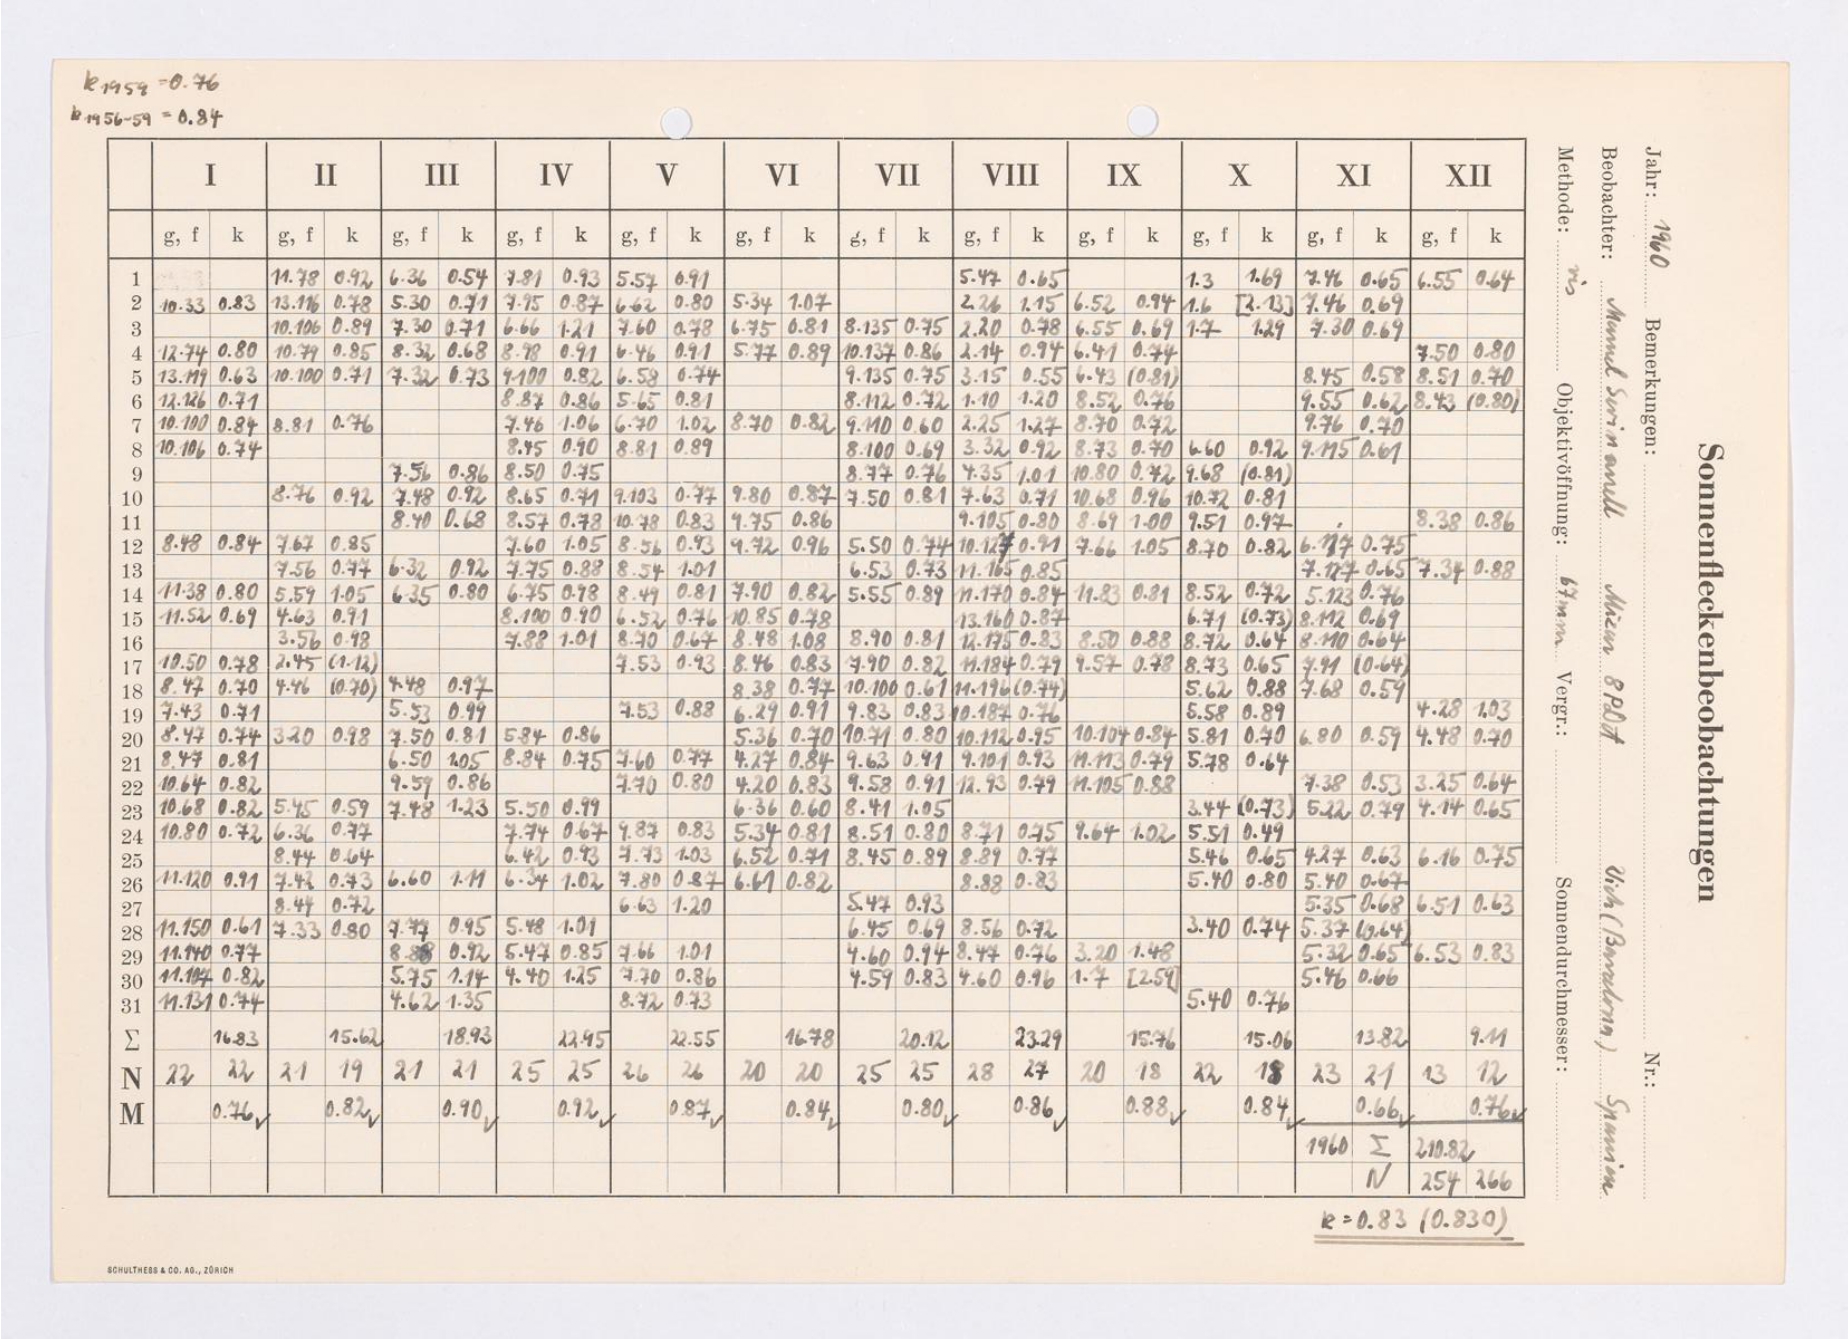 k1959 = 0.76
k1956-59 = 0.84
I II III IV V VI VII VIII IX X XI XII
g, f k g, f k g, f k g, f k g, f k g, f k g, f k g, f k g, f k g, f k g, f k g, f k
1 11.78 0.92 6.36 0.54 7.81 0.93 5.57 0.91 5.47 0.65 1.3 1.69 7.46 0.65 6.55 0.64
2 10.33 0.83 13.116 0.78 5.30 0.71 7.95 0.87 6.62 0.80 5.34 1.07 2.26 1.15 6.52 0.94 1.6 [2.13] 7.46 0.69
3 10.106 0.89 7.30 0.71 6.66 1.21 7.60 0.78 6.75 0.81 8.135 0.75 2.20 0.78 6.55 0.69 1.7 1.29 7.30 0.69
4 12.74 0.80 10.79 0.85 8.32 0.68 8.98 0.91 6.46 0.91 5.77 0.89 10.137 0.86 2.14 0.94 6.41 0.74 7.50 0.80
5 13.119 0.63 10.100 0.71 7.32 0.73 9.100 0.82 6.58 0.74 9.135 0.75 3.15 0.55 6.43 (0.81) 8.45 0.58 8.51 0.70
6 12.126 0.71 8.87 0.86 5.65 0.81 8.112 0.72 1.10 1.20 8.52 0.76 9.55 0.62 8.43 (0.80)
7 10.100 0.84 8.81 0.76 7.46 1.06 6.70 1.02 8.70 0.82 9.110 0.60 2.25 1.27 8.70 0.72 9.76 0.70
8 10.106 0.74 8.45 0.90 8.81 0.89 8.100 0.69 3.32 0.92 8.73 0.70 6.60 0.92 9.115 0.61
9 7.56 0.86 8.50 0.75 8.77 0.76 4.35 1.01 10.80 0.72 9.68 (0.81)
10 8.76 0.92 7.48 0.92 8.65 0.71 9.103 0.77 9.80 0.87 7.50 0.81 7.63 0.71 10.68 0.96 10.72 0.81
11 8.40 0.68 8.57 0.78 10.78 0.83 9.75 0.86 9.105 0.80 8.69 1.00 9.51 0.97 8.38 0.86
12 8.48 0.84 7.67 0.85 7.60 1.05 8.56 0.93 9.72 0.96 5.50 0.74 10.127 0.91 7.66 1.05 8.70 0.82 6.117 0.75
13 7.56 0.77 6.32 0.92 7.75 0.88 8.54 1.01 6.53 0.73 11.165 0.85 7.127 0.65 7.34 0.88
14 11.38 0.80 5.59 1.05 6.35 0.80 6.75 0.98 8.49 0.81 7.90 0.82 5.55 0.89 11.170 0.84 11.83 0.81 8.52 0.72 5.123 0.76
15 11.52 0.69 4.63 0.91 8.100 0.90 6.52 0.76 10.85 0.78 13.160 0.87 6.71 (0.73) 8.112 0.69
16 3.56 0.98 7.88 1.01 8.70 0.67 8.48 1.08 8.90 0.81 12.175 0.83 8.50 0.88 8.72 0.64 8.110 0.64
17 10.50 0.78 2.45 (1.12) 7.53 0.93 8.46 0.83 7.90 0.82 11.184 0.79 9.57 0.78 8.73 0.65 7.91 (0.64)
18 8.47 0.70 4.46 (0.70) 4.48 0.97 8.38 0.77 10.100 0.61 11.196 (0.74) 5.62 0.88 7.68 0.59
19 7.43 0.71 5.53 0.99 7.53 0.88 6.29 0.91 9.83 0.83 10.187 0.76 5.58 0.89 4.28 1.03
20 8.47 0.74 3.20 0.98 7.50 0.81 5.84 0.86 5.36 0.70 10.71 0.80 10.112 0.95 10.104 0.84 5.81 0.70 6.80 0.59 4.48 0.70
21 8.47 0.81 6.50 1.05 8.84 0.75 7.60 0.77 4.27 0.84 9.63 0.91 9.101 0.93 11.113 0.79 5.78 0.64
22 10.64 0.82 9.59 0.86 7.70 0.80 4.20 0.83 9.58 0.91 12.93 0.79 11.105 0.88 7.38 0.53 3.25 0.64
23 10.68 0.82 5.45 0.59 7.48 1.23 5.50 0.99 6.36 0.60 8.41 1.05 3.44 (0.73) 5.22 0.79 4.14 0.65
24 10.80 0.72 6.36 0.77 7.74 0.67 9.87 0.83 5.34 0.81 8.51 0.80 8.71 0.75 9.64 1.02 5.51 0.49
25 8.44 0.64 6.42 0.93 7.73 1.03 6.52 0.71 8.45 0.89 8.89 0.77 5.46 0.65 4.27 0.63 6.16 0.75
26 11.120 0.91 7.42 0.73 6.60 1.11 6.34 1.02 7.80 0.87 6.61 0.82 8.88 0.83 5.40 0.80 5.40 0.67
27 8.44 0.72 6.63 1.20 5.47 0.93 5.35 0.68 6.51 0.63
28 11.150 0.61 7.33 0.80 7.77 0.95 5.48 1.01 6.45 0.69 8.56 0.72 3.40 0.74 5.37 (0.64)
29 11.140 0.77 0.92 5.47 0.85 7.66 1.01 4.60 0.94 8.47 0.76 3.20 1.48 5.32 0.65 6.53 0.83
30 11.107 0.82 5.75 1.14 4.40 1.25 7.70 0.86 4.59 0.83 4.60 0.96 1.7 [2.59] 5.46 0.66
31 11.131 0.74 4.62 1.35 8.72 0.73 5.40 0.76
Σ 16.83 15.62 18.93 22.95 22.55 16.78 20.12 23.29 15.76 15.06 13.82 9.11
N 22 22 21 19 21 21 25 25 26 26 20 20 25 25 28 27 20 18 22 18 23 21 13 12
M 0.76✓ 0.82✓ 0.90✓ 0.92✓ 0.87✓ 0.84✓ 0.80✓ 0.86✓ 0.88✓ 0.84✓ 0.66✓ 0.76✓
1960 Σ 210.82
N 254 266
k = 0.83 (0.830)
SCHULTHESS & CO. AG., ZÜRICH
Sonnenfleckenbeobachtungen
Jahr: 1960 Bemerkungen: Nr.:
Beobachter: Vich (Barcelona) Spanien
Methode: vis Objektivöffnung: 67mm Vergr.: Sonnendurchmesser: